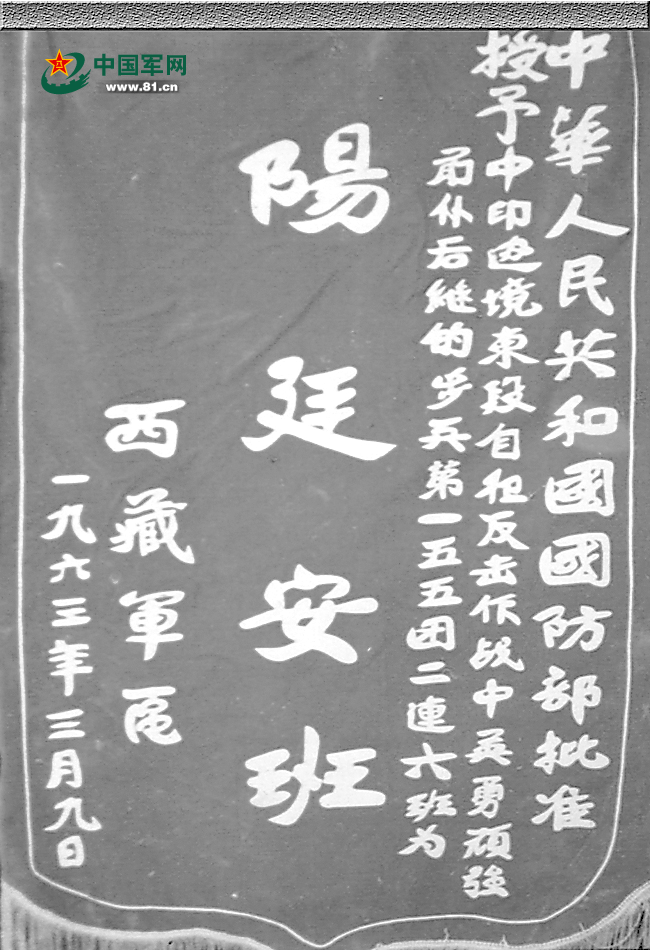 中国军网
www.81.cn
中華人民共和國國防部批准
授予中印边境東段自衛反击作战中英勇頑強
前仆后継的步兵第一五五团二連六班为
陽廷安班
西藏軍区
一九六三年三月九日